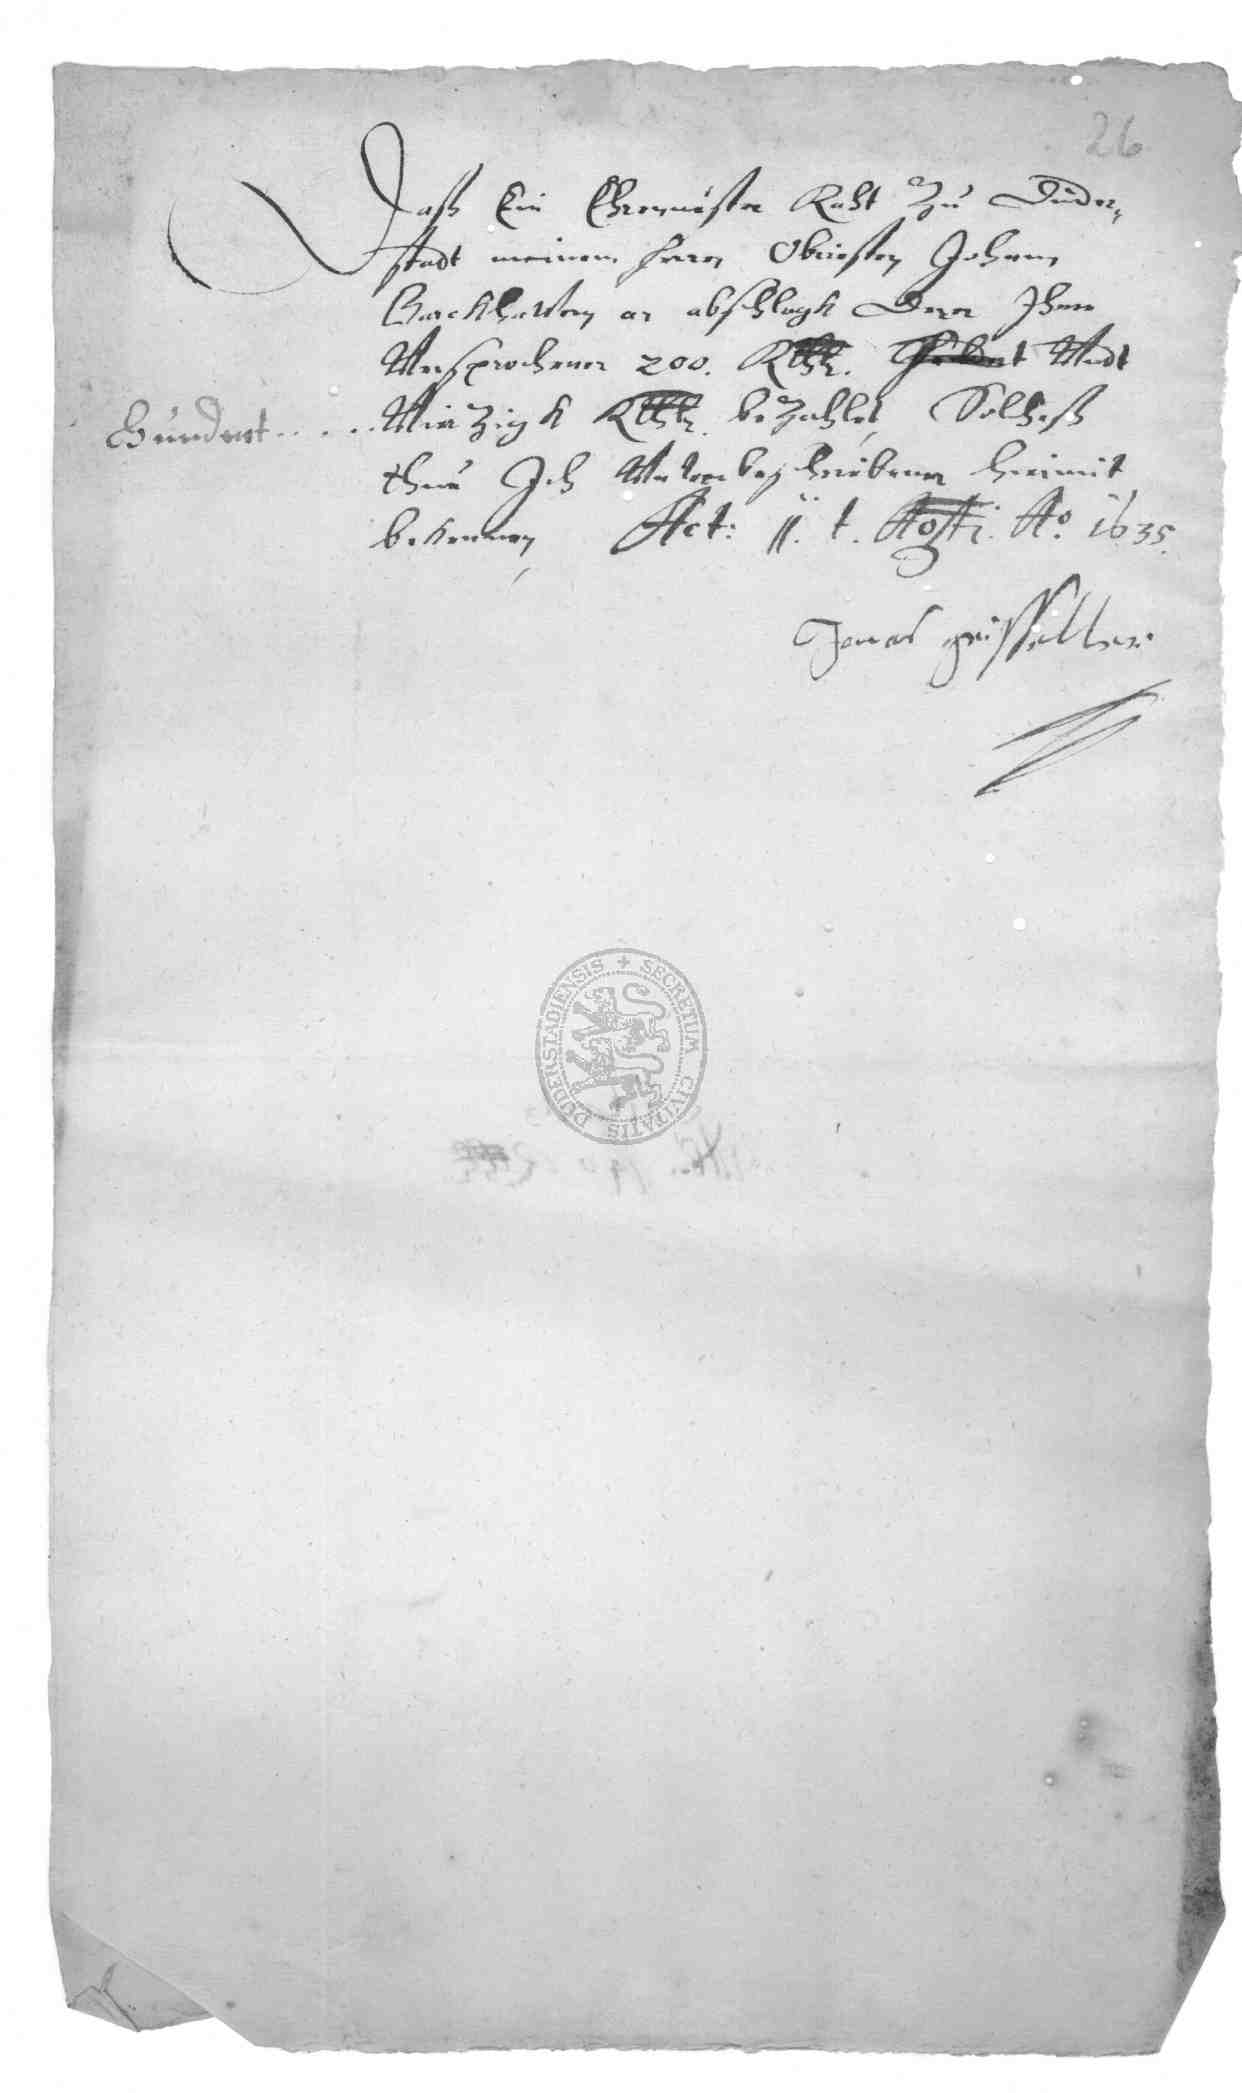 26
Daß Ein Ehrnvester Raht Zu Duder-
stadt meinem Herrn Obristen Johann
Backhausen an abschlagk Derer Ihme
Versprochener 200. Rthlr. Vndt
Hundert . . . . Vierzigk Rthlr. bezahlet, Solcheß
thue Ich Vnterbeschriebener hiermit
bekennen, Act: 11. t. Aosti. Ao. 1635.
Jonas
SECRETUM CIVITATIS DUDERSTADIENSIS